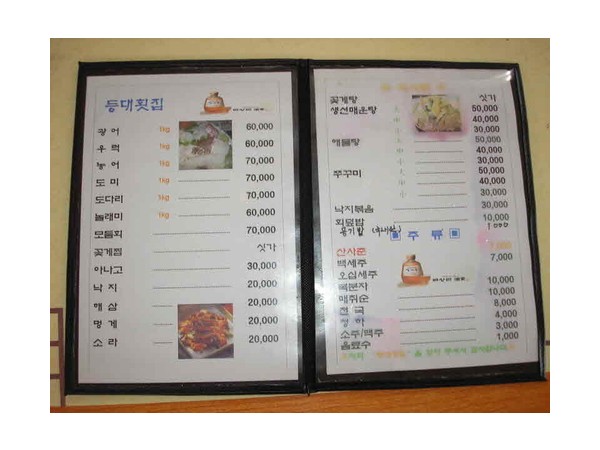 등대횟집
광 어 1kg 60,000
우 럭 1kg 60,000
농 어 1kg 70,000
도 미 1kg 70,000
도다리 1kg 70,000
놀래미 1kg 60,000
모듬회 70,000
꽃게찜 싯가
아나고 30,000
낙 지 20,000
해 삼 20,000
멍 게 20,000
소 라 20,000
꽃게탕 싯가
생선매운탕 大 50,000
中 40,000
小 30,000
해물탕 大 50,000
中 40,000
小 30,000
쭈꾸미 大 50,000
中 40,000
小 30,000
낙지볶음 30,000
회덮밥 10,000
공기밥
주 류
산사춘 7,000
백세주 7,000
오십세주
복분자 10,000
매취순 10,000
천 국 8,000
청 하 4,000
소주/맥주 3,000
음료수 1,000